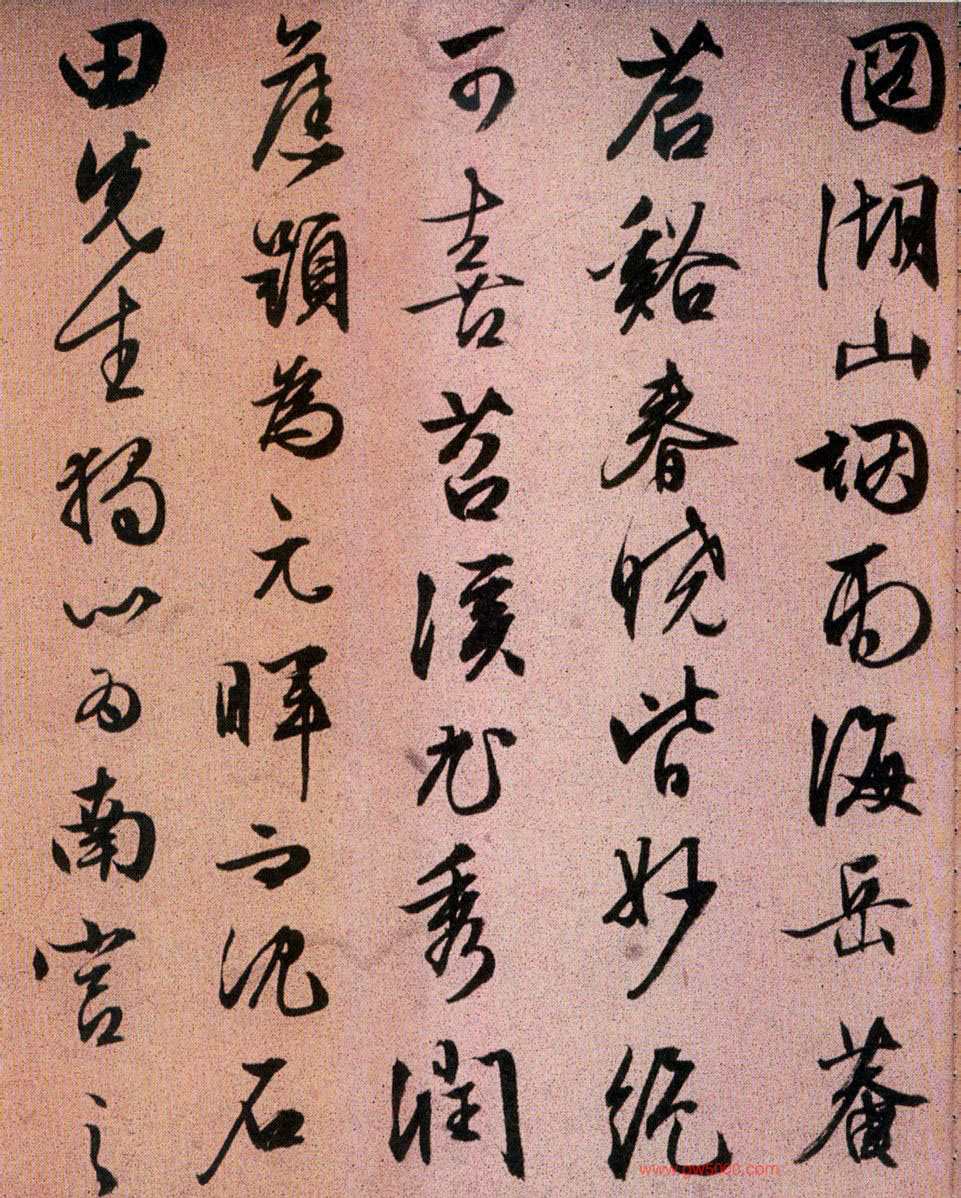 圖湖山烟雨海岳菴
苕谿春曉皆妙絕
可喜苕溪尤秀潤
舊題為元暉而沈石
田先生獨以為南宮之